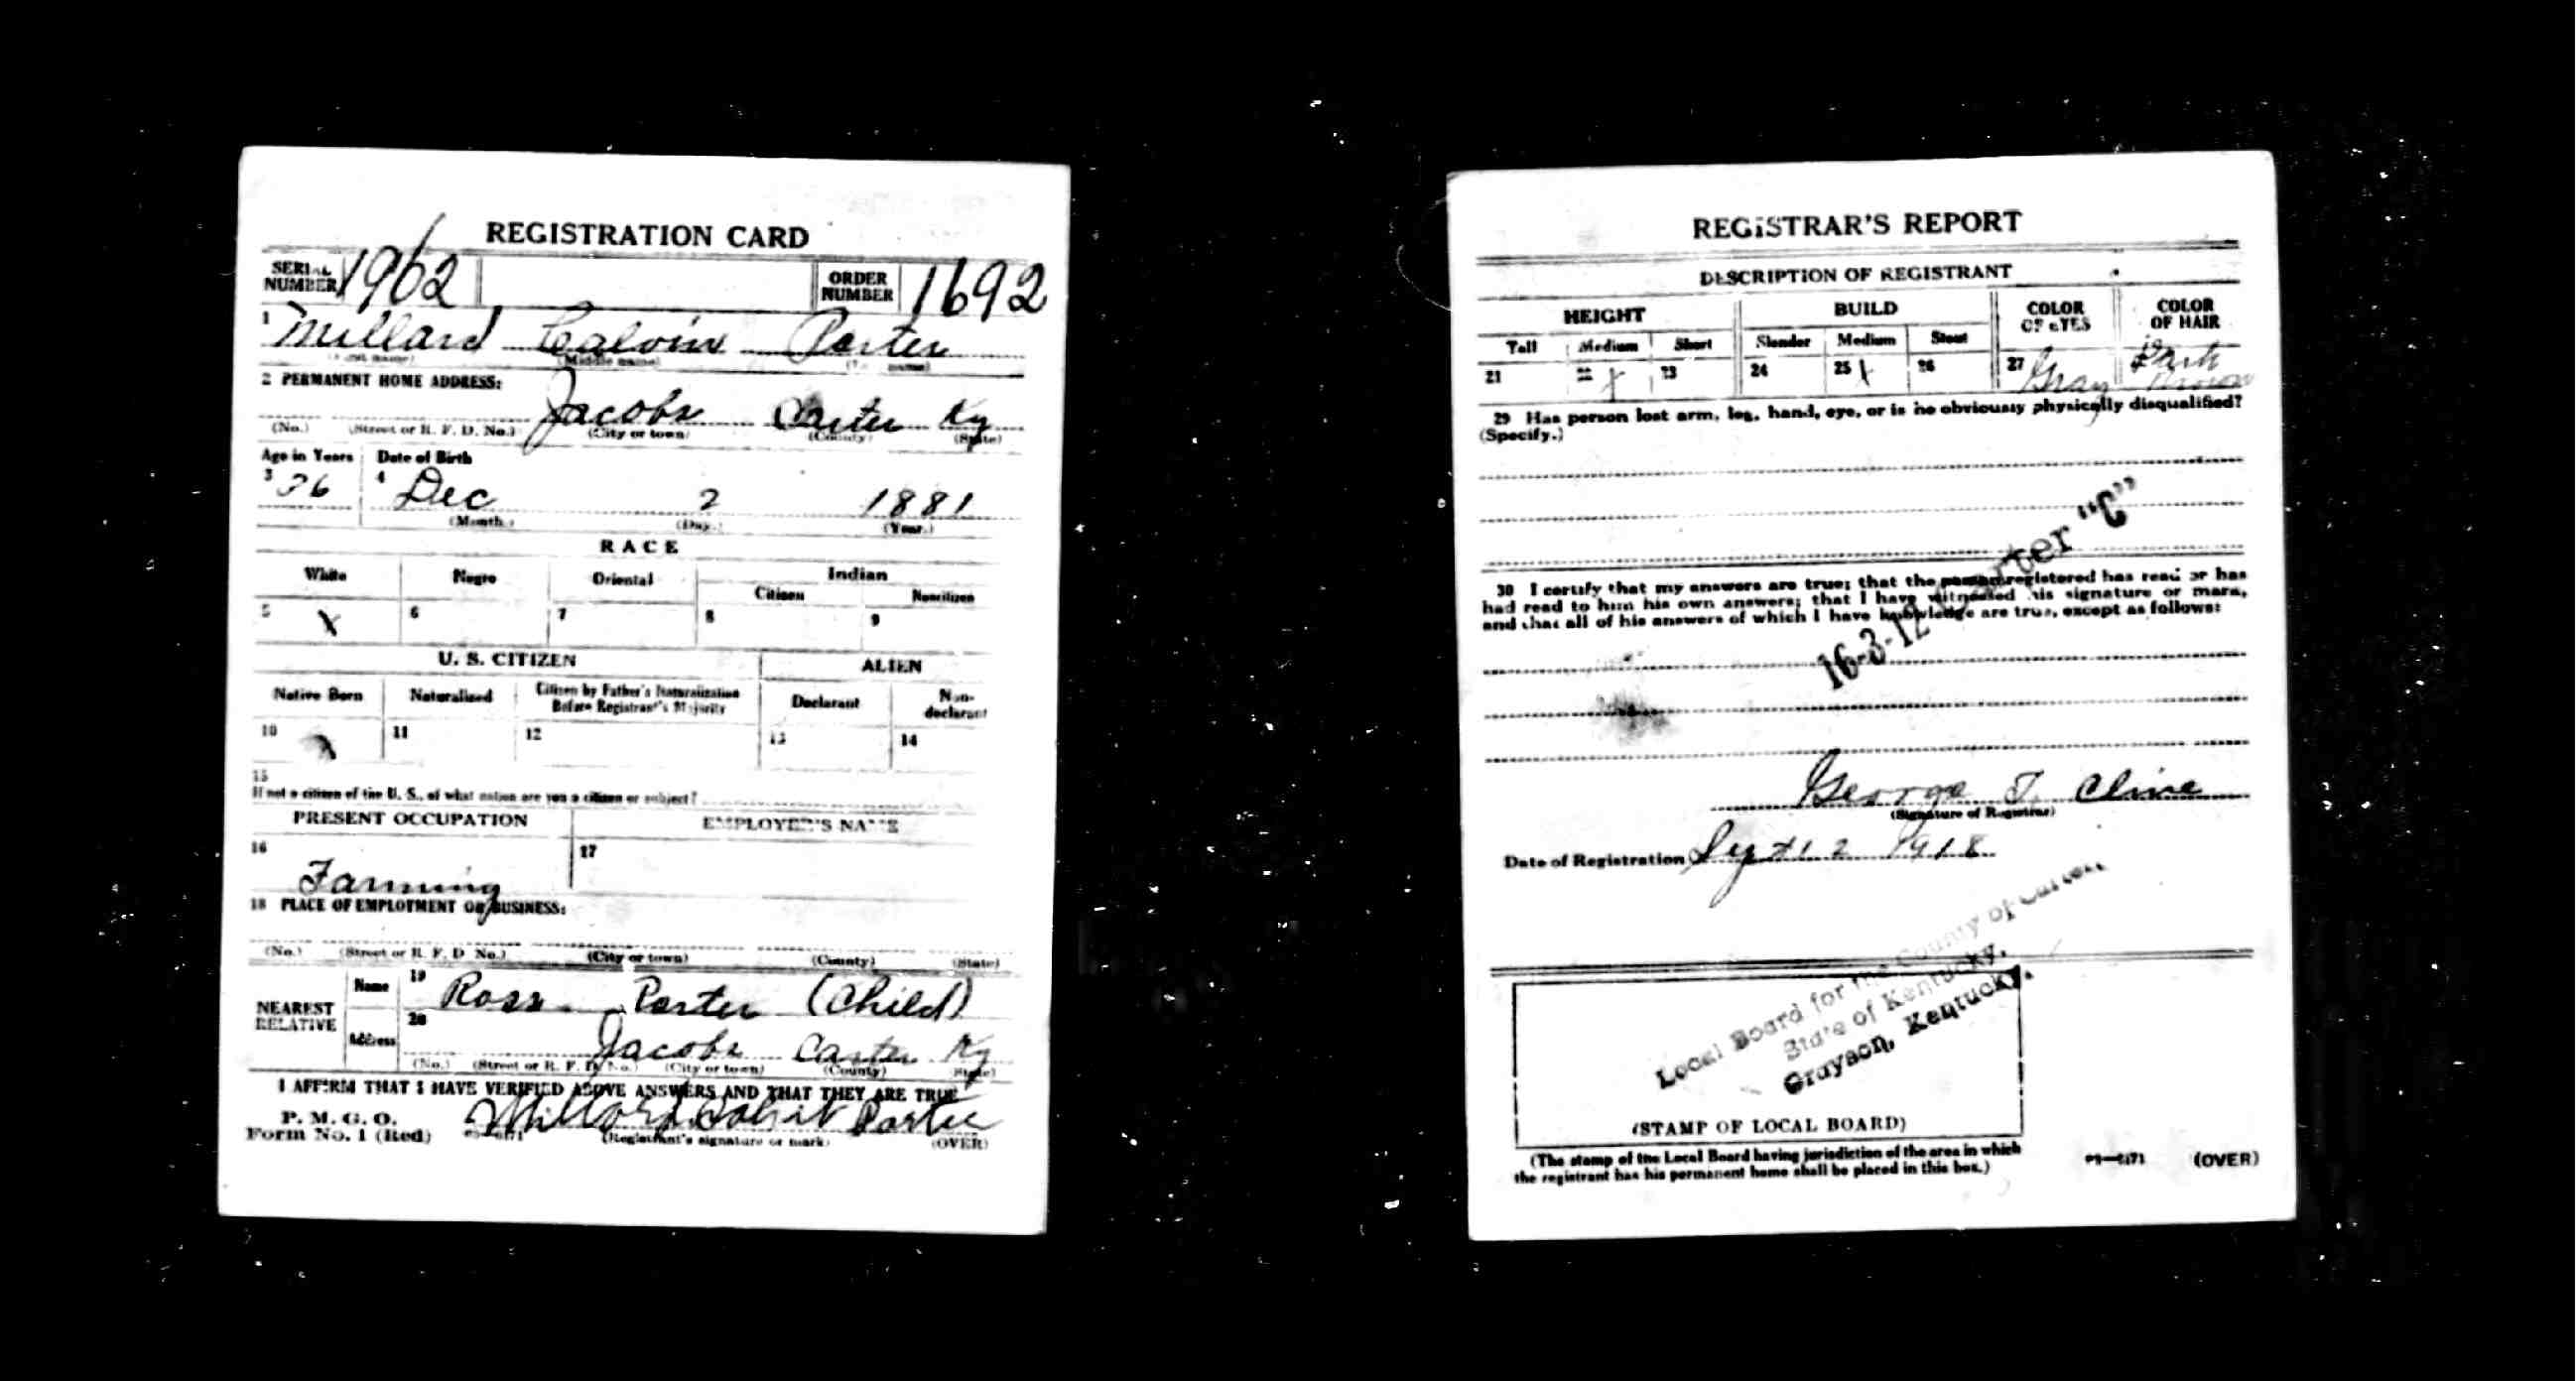 REGISTRATION CARD
SERIAL NUMBER 1962 ORDER NUMBER 1692
1 Millard Calvin Porter
(First name) (Middle name) (Last name)
2 PERMANENT HOME ADDRESS:
Jacobs Carter Ky
(No.) (Street or R. F. D. No.) (City or town) (County) (State)
Age in Years Date of Birth
3 36 4 Dec 2 1881
(Month.) (Day.) (Year.)
RACE
White Negro Oriental Indian
Citizen Noncitizen
5 X 6 7 8 9
U. S. CITIZEN ALIEN
Native Born Naturalized Citizen by Father's Naturalization Before Registrant's Majority Declarant Non-declarant
10 11 12 13 14
15
If not a citizen of the U. S., of what nation are you a citizen or subject?
PRESENT OCCUPATION EMPLOYER'S NAME
16 Farming 17
18 PLACE OF EMPLOYMENT OR BUSINESS:
(No.) (Street or R. F. D No.) (City or town) (County) (State)
NEAREST RELATIVE Name 19 Ross Porter (Child)
Address 20 Jacobs Carter Ky
(No.) (Street or R. F. D. No.) (City or town) (County) (State)
I AFFIRM THAT I HAVE VERIFIED ABOVE ANSWERS AND THAT THEY ARE TRUE
P. M. G. O.
Form No. 1 (Red) Millard Porter
(Registrant's signature or mark) (OVER)
REGISTRAR'S REPORT
DESCRIPTION OF REGISTRANT
HEIGHT BUILD COLOR OF EYES COLOR OF HAIR
Tall Medium Short Slender Medium Stout
21 22 X 23 24 25 X 26 27 Gray Dark Brown
29 Has person lost arm, leg, hand, eye, or is he obviously physically disqualified?
(Specify.)
16-3-12 Carter "C"
30 I certify that my answers are true; that the person registered has read or has
had read to him his own answers; that I have witnessed his signature or mark,
and that all of his answers of which I have knowledge are true, except as follows:
George T. Cline
(Signature of Registrar)
Date of Registration Sept 12 1918
Local Board for the County of Carter,
State of Kentucky,
Grayson, Kentucky.
(STAMP OF LOCAL BOARD)
(The stamp of the Local Board having jurisdiction of the area in which
the registrant has his permanent home shall be placed in this box.)
03—6171 (OVER)